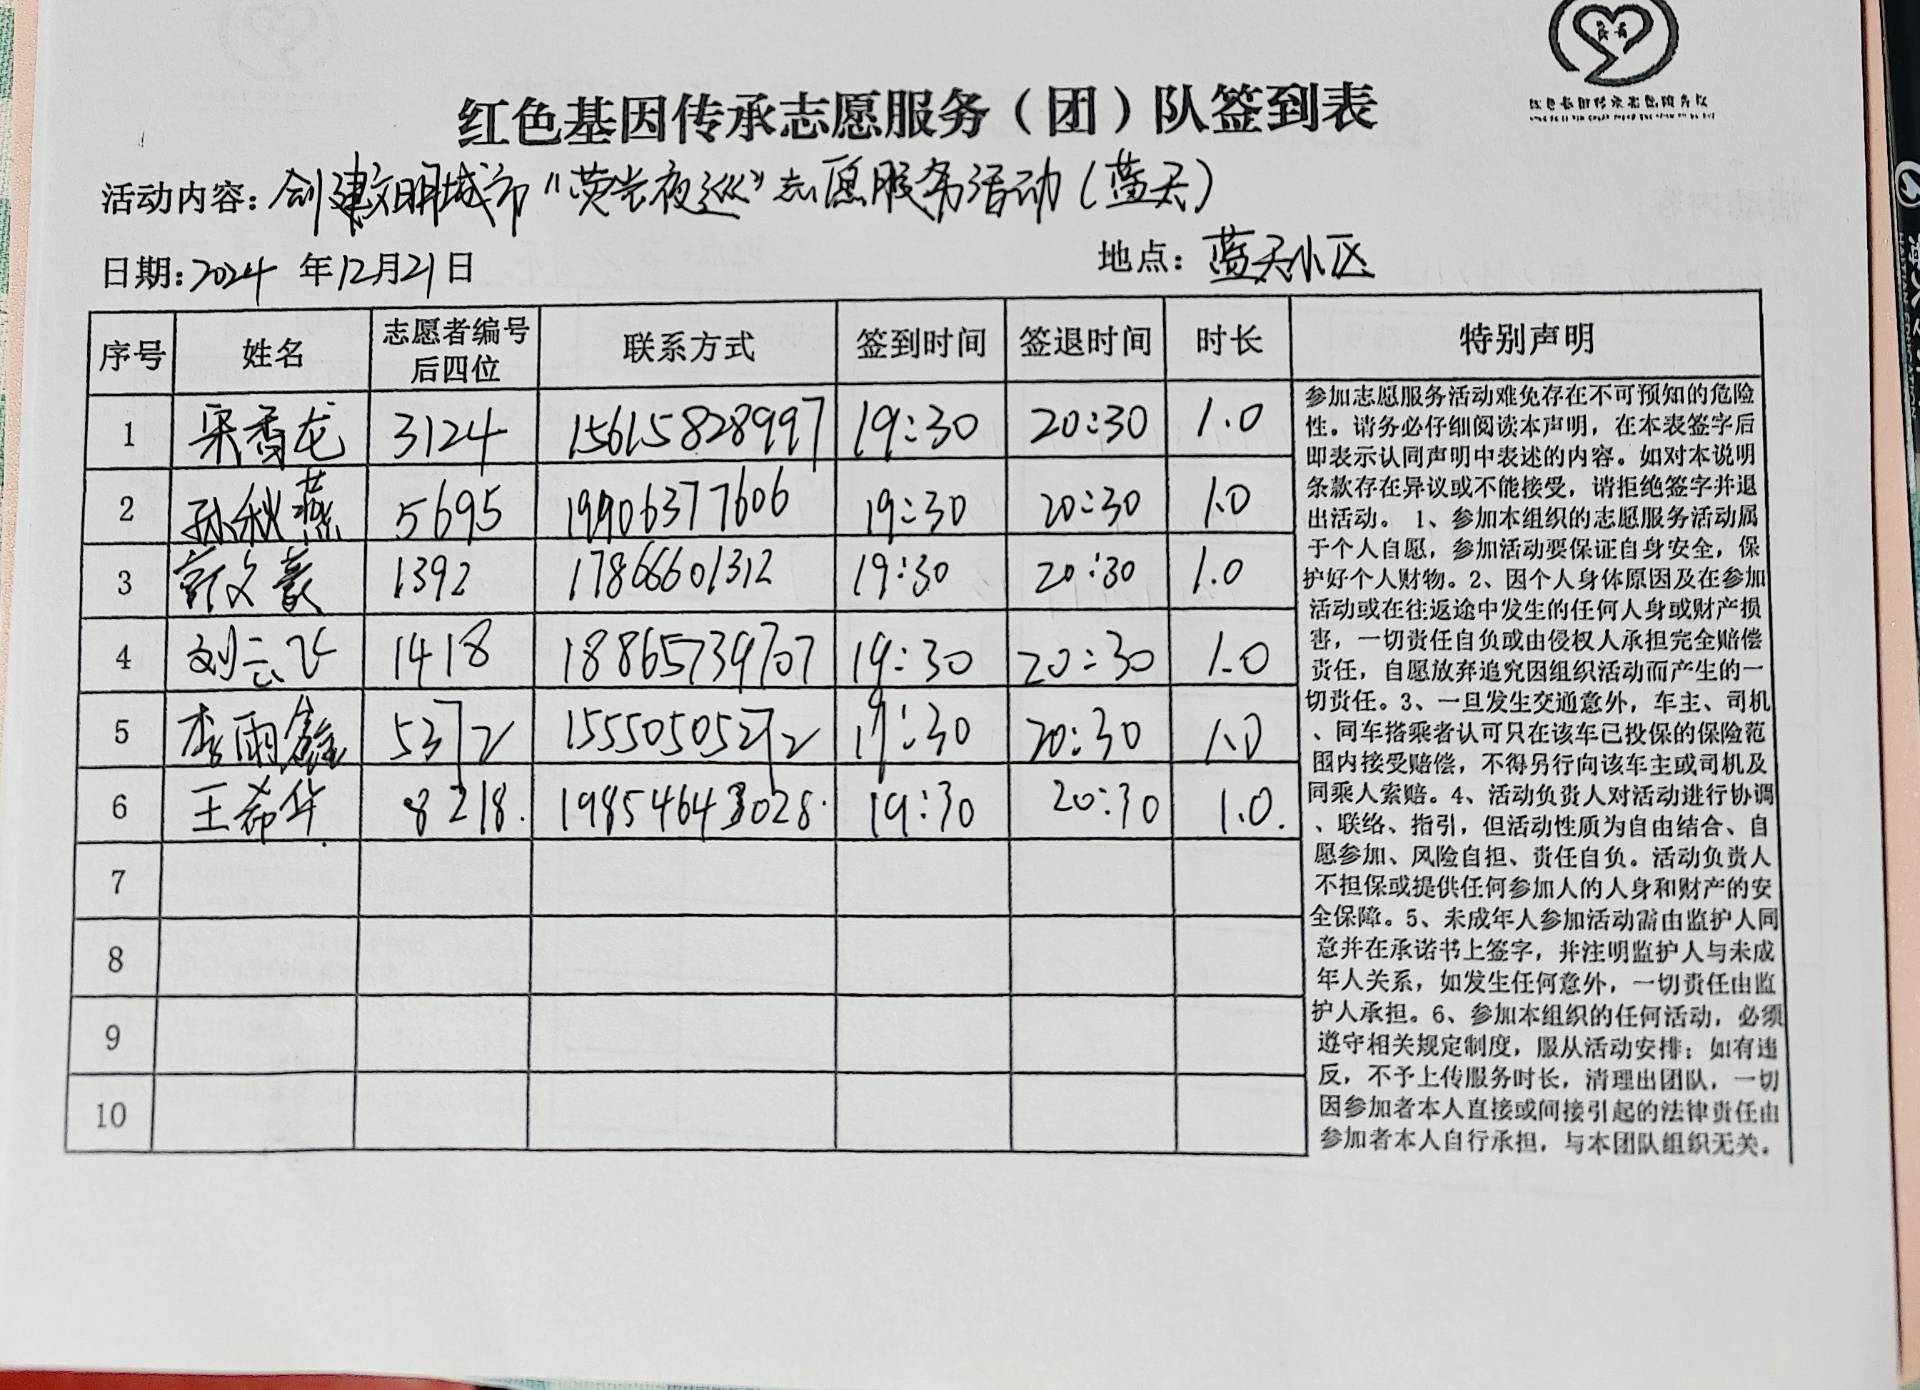 红色基因传承志愿服务（团）队签到表
活动内容：创建文明城市“荧光夜巡”志愿服务活动（蓝天）
日期：2024 年12月21日 地点：蓝天小区
序号 姓名 志愿者编号后四位 联系方式 签到时间 签退时间 时长 特别声明
1 3124 15615828997 19:30 20:30 1.0
2 孙秋燕 5695 19906377606 19:30 20:30 1.0
3 文豪 1392 17866601312 19:30 20:30 1.0
4 刘云飞 1418 18865739707 19:30 20:30 1.0
5 李雨鑫 5372 15550505272 19:30 20:30 1.0
6 王希华 8218. 19854643028. 19:30 20:30 1.0.
7
8
9
10
参加志愿服务活动难免存在不可预知的危险
性。请务必仔细阅读本声明，在本表签字后
即表示认同声明中表述的内容。如对本说明
条款存在异议或不能接受，请拒绝签字并退
出活动。 1、参加本组织的志愿服务活动属
于个人自愿，参加活动要保证自身安全，保
护好个人财物。2、因个人身体原因及在参加
活动或在往返途中发生的任何人身或财产损
害，一切责任自负或由侵权人承担完全赔偿
责任，自愿放弃追究因组织活动而产生的一
切责任。3、一旦发生交通意外，车主、司机
、同车搭乘者认可只在该车已投保的保险范
围内接受赔偿，不得另行向该车主或司机及
同乘人索赔。4、活动负责人对活动进行协调
、联络、指引，但活动性质为自由结合、自
愿参加、风险自担、责任自负。活动负责人
不担保或提供任何参加人的人身和财产的安
全保障。5、未成年人参加活动需由监护人同
意并在承诺书上签字，并注明监护人与未成
年人关系，如发生任何意外，一切责任由监
护人承担。6、参加本组织的任何活动，必须
遵守相关规定制度，服从活动安排；如有违
反，不予上传服务时长，清理出团队，一切
因参加者本人直接或间接引起的法律责任由
参加者本人自行承担，与本团队组织无关。